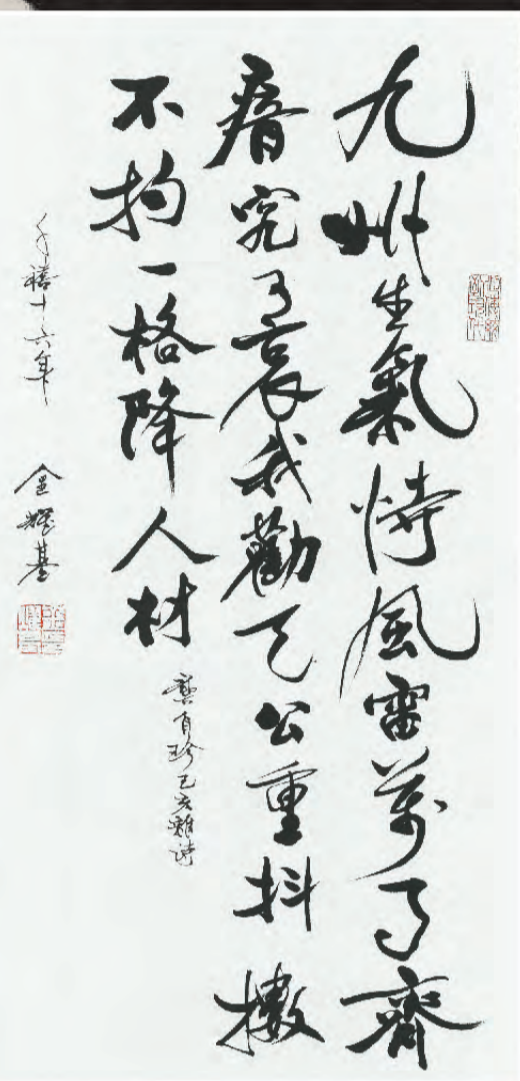 九州生氣恃風雷萬馬齊
瘖究可哀我勸天公重抖擻
不拘一格降人材
龔自珍己亥雜詩
千禧十六年
金耀基